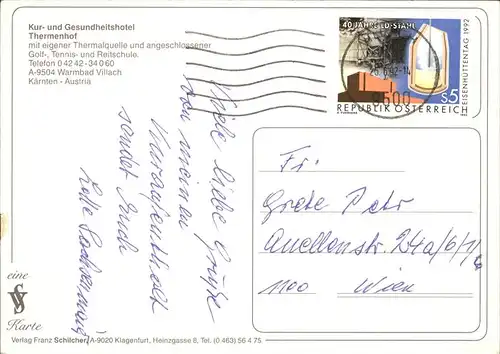 Kur- und Gesundheitshotel
Thermenhof
mit eigener Thermalquelle und angeschlossener
Golf-, Tennis- und Reitschule.
Telefon 0 42 42 - 34 0 60
A-9504 Warmbad Villach
Kärnten - Austria
40 JAHRE LD-STAHL
EISENHÜTTENTAG 1992
9600
S5
REPUBLIK ÖSTERREICH
Viele liebe Grüße
von meinem
Kuraufenthalt
sendet Euch
Fr.
Grete Petr
Quellenstr. 24a/6/1/
1100 Wien
eine
VS
Karte
Verlag Franz Schilcher, A-9020 Klagenfurt, Heinzgasse 8, Tel. (0 463) 56 4 75